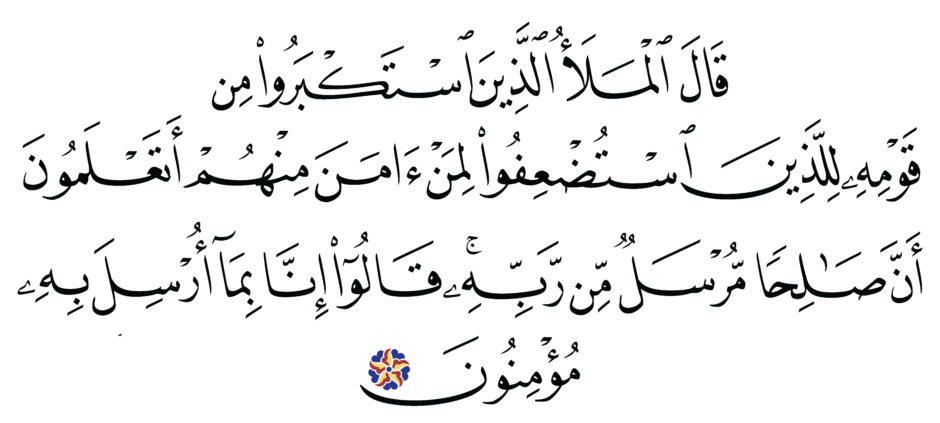 قَالَ ٱلْمَلَأُ ٱلَّذِينَ ٱسْتَكْبَرُوا۟ مِن
قَوْمِهِۦ لِلَّذِينَ ٱسْتُضْعِفُوا۟ لِمَنْ ءَامَنَ مِنْهُمْ أَتَعْلَمُونَ
أَنَّ صَـٰلِحًا مُّرْسَلٌ مِّن رَّبِّهِۦ ۚ قَالُوٓا۟ إِنَّا بِمَآ أُرْسِلَ بِهِۦ
مُؤْمِنُونَ